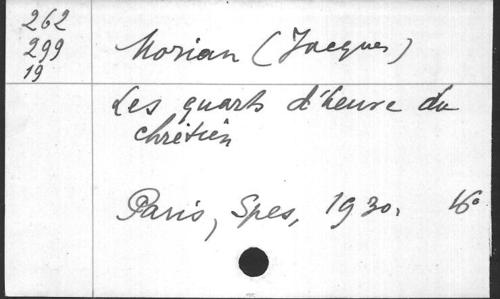 262
299
19
Morian (Jacques)
Les quarts d'heure du
chrétien
Paris, Spes, 1930. 16°